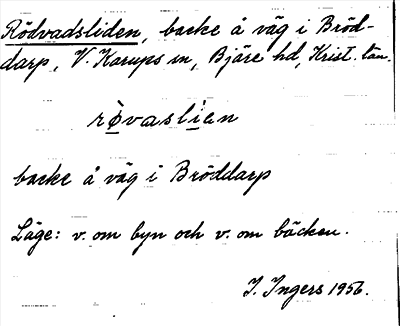 Rödvadsliden, backe å väg i Bröd-
darp, V. Karups sn, Bjäre hd, Krist. län.
rø̀vaslien
backe å väg i Bröddarp
Läge: v. om byn och v. om bäcken.
I. Ingers 1956.